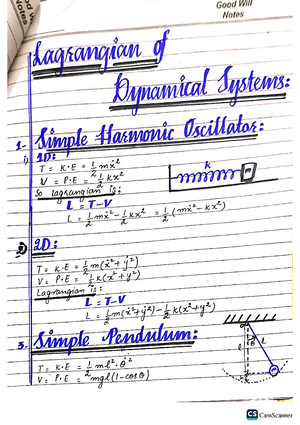 Good Will
Notes
Lagrangian of
Dynamical Systems:
1- Simple Harmonic Oscillator:
i) 1D:
T = K.E = 1/2 mẋ²
V = P.E = 1/2 kx²
So lagrangian is;
L = T-V
L = 1/2 mẋ² - 1/2 kx² = 1/2 (mẋ² - kx²)
k
m
2D:
T = K.E = 1/2 m(ẋ² + ẏ²)
V = P.E = 1/2 k(x² + y²)
Lagrangian is;
L = T-V
L = 1/2 m(ẋ² + ẏ²) - 1/2 k(x² + y²)
3. Simple Pendulum:
T = K.E = 1/2 ml² θ̇²
V = P.E = mgl(1-cosθ)
θ
l
l
CS CamScanner